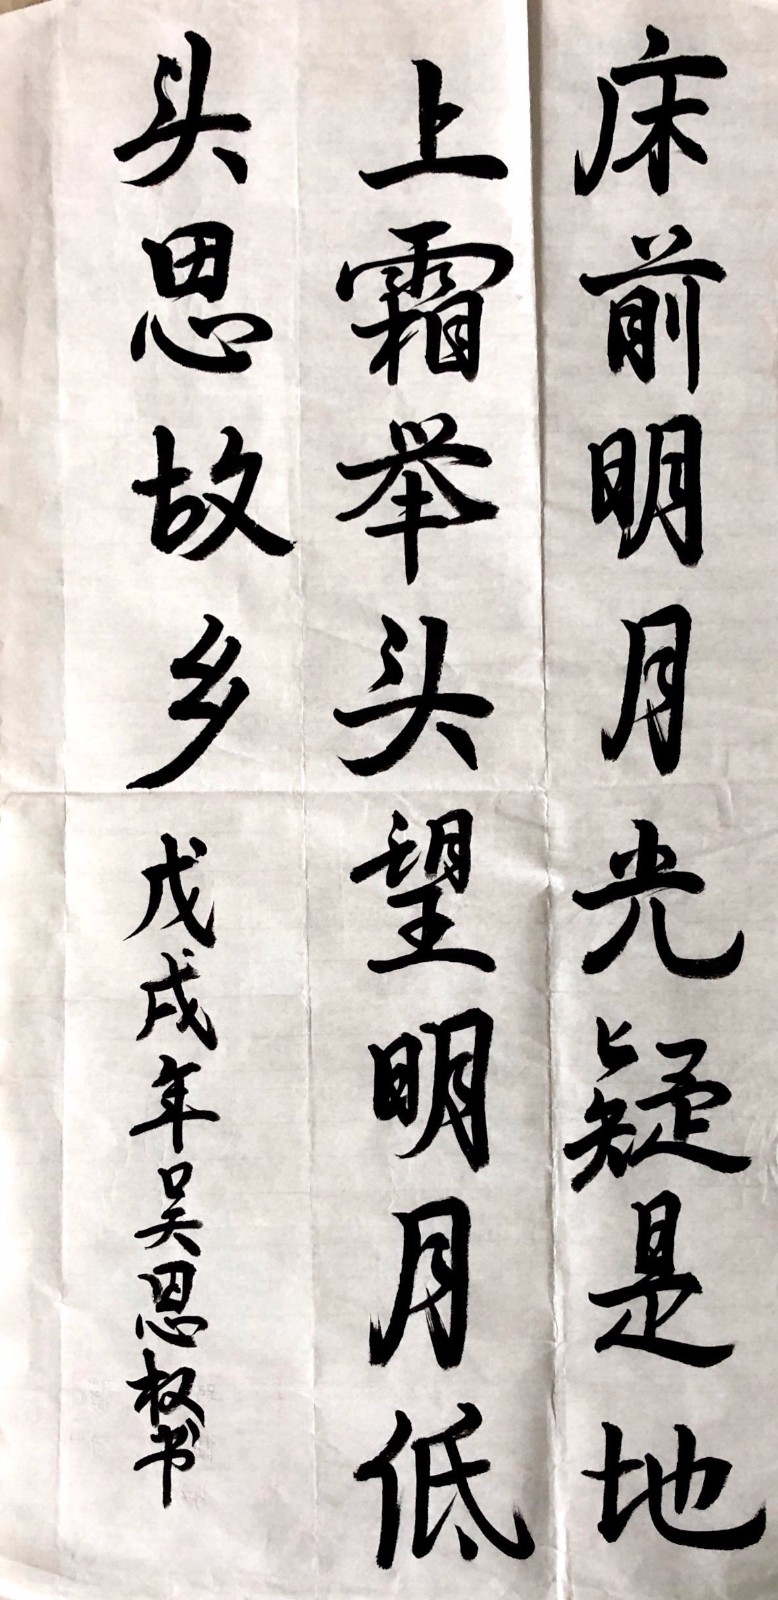 床前明月光疑是地
上霜举头望明月低
头思故乡
戊戌年吴恩权书